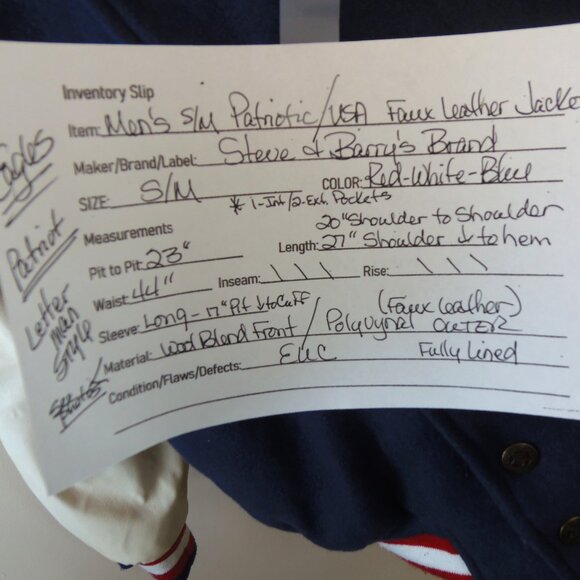 Inventory Slip
Item: Men's S/M Patriotic/USA Faux Leather Jacke
Maker/Brand/Label: Steve & Barry's Brand
SIZE: S/M COLOR: Red-White-Blue
* 1-Int/2-Ext. Pockets
Measurements 20" Shoulder to Shoulder
Pit to Pit: 23" Length: 27" Shoulder ↓ to hem
Waist: 44" Inseam: \ \ \ Rise: \ \ \
Sleeve: Long - 17" Pit ↓ to Cuff (Faux Leather)
Material: Wool Blend Front / Polyvynel OUTER
Condition/Flaws/Defects: EUC Fully Lined
Eagles
Patriot
Letter
man
Style
See
Photos